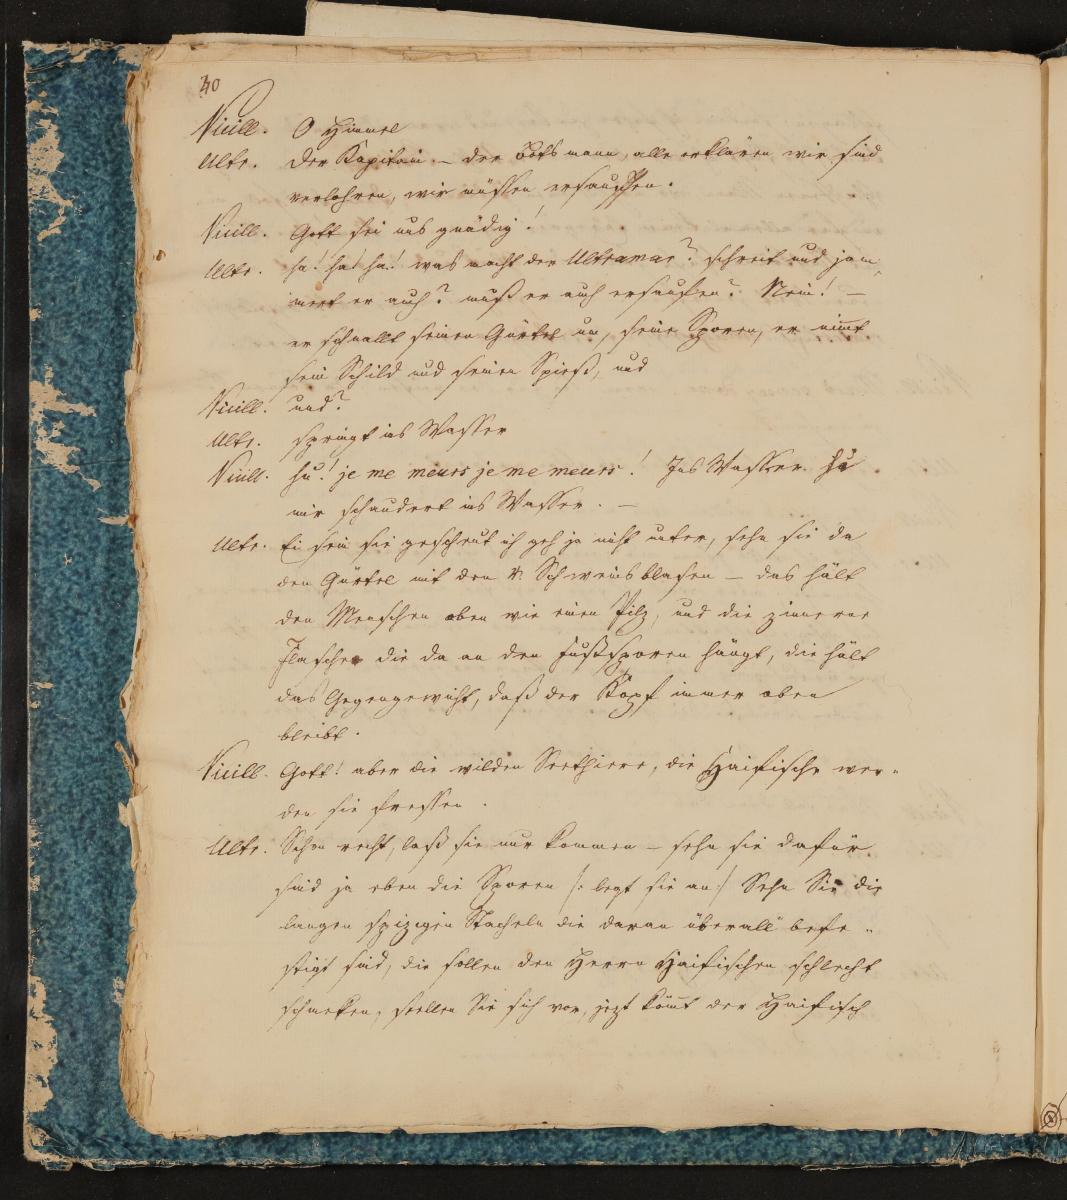 40
Vieill. O Himmel
Ultr. der Kapitain – der Botsmann, alle erklären wir sind
verlohren, wir müssen ersauffen.
Vieill. Gott sei uns gnädig!
Ultr. ha! ha! ha! was macht der Ultramar? schreit und jam
mert er auch? muß er auch ersaufen? Nein! –
er schnallt seinen Gürtel um, seine Sporen, er nimt
sein Schild und seinen Spieß, und
Vieill. und?
Ultr. springt ins Wasser
Vieill. hu! je me meurs je me meurs! Ins Wasser hu
mir schaudert ins Wasser. –
Ultr. Ei sein sie gescheut ich geh ja nicht unter, sehn sie da
den Gürtel mit den Schweinsblasen – das hält
den Menschen oben wie einen Pilz, und die zinnerne
Flasche die da an den Fußsporen hängt, die hält
das Gegengewicht, daß der Kopf immer oben
bleibt.
Vieill. Gott! aber die wilden Seethiere, die Haifische wer-
den sie fressen.
Ultr. Schon recht, laß sie nur kommen – sehn sie dafür
sind ja eben die Sporen /: legt sie an :/ Sehn Sie die
langen spizigen Stacheln die daran überall befe-
stigt sind, die sollen den Herrn Haifischen schlecht
schmeken, stellen Sie sich vor, jezt kömt der Haifisch